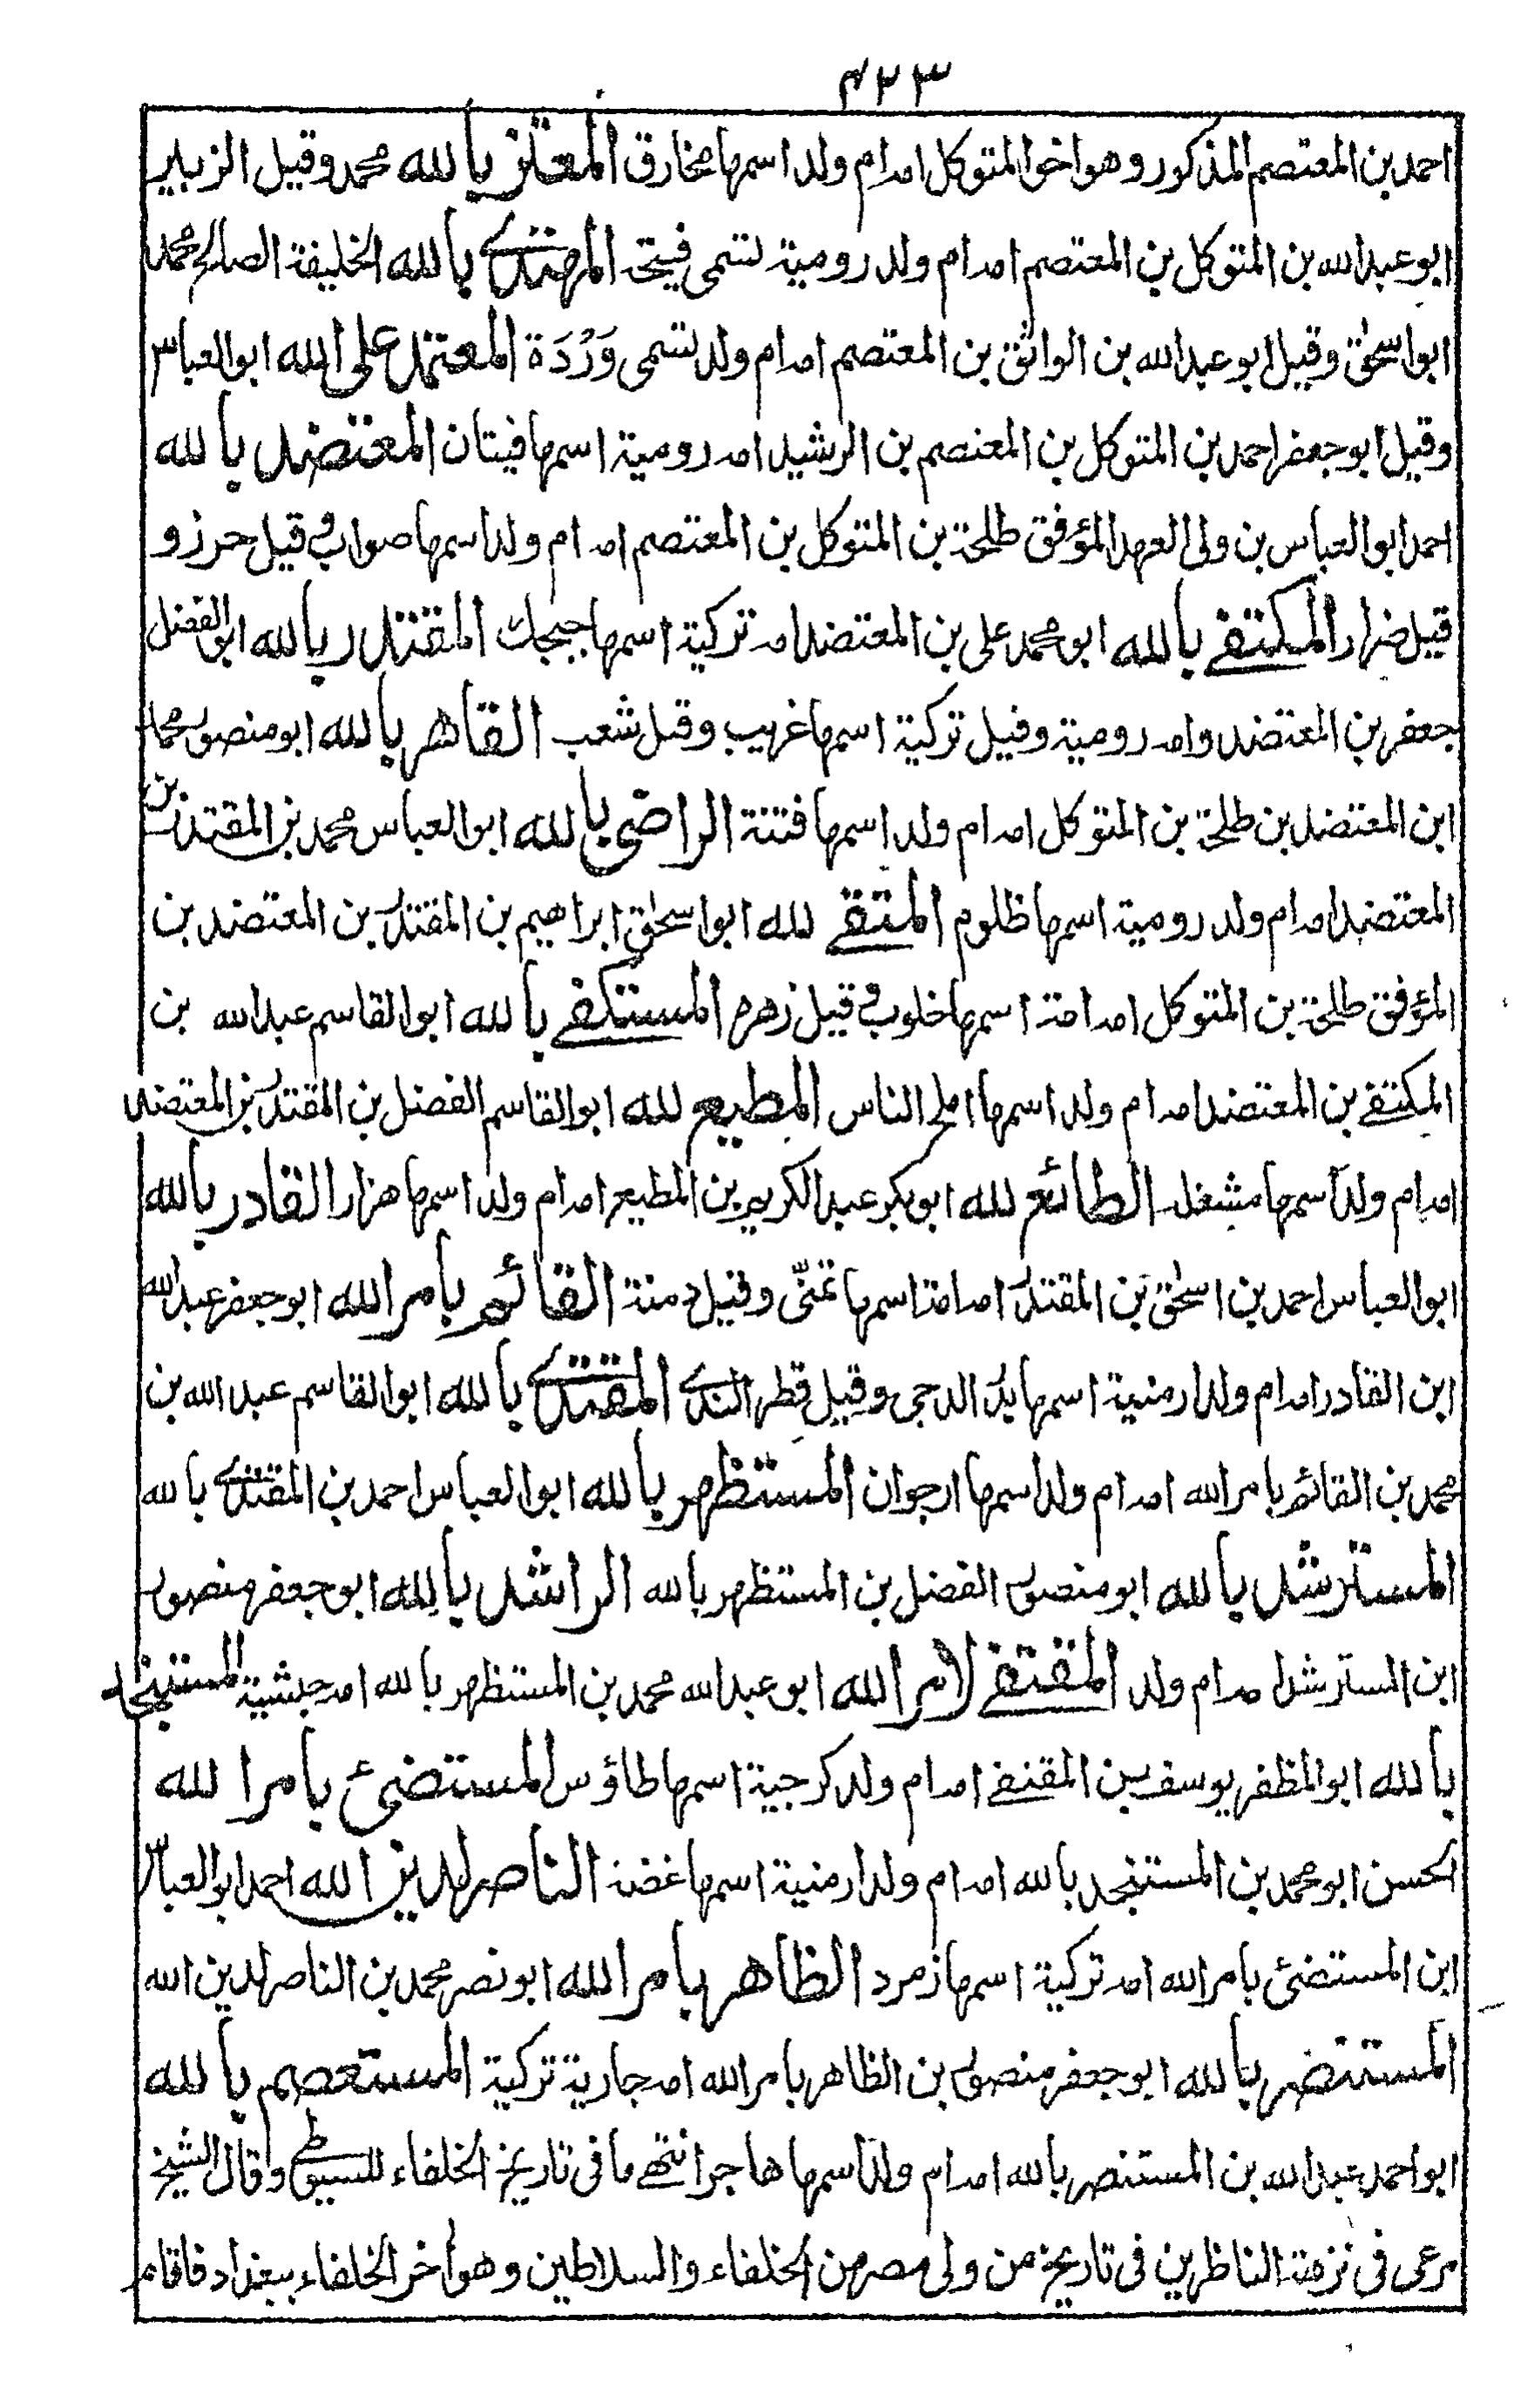 ٤٢٣
احمد بن المعتصم المذكور وهو اخو المتوكل امه ام ولد اسمها مخارق المعتز بالله محمد وقيل الزبير
ابو عبد الله بن المتوكل بن المعتصم امه ام ولد رومية تسمى فيتحة المهتدي بالله الخليفة الصالح محمد
ابو اسحق وقيل ابو عبد الله بن الواثق بن المعتصم امه ام ولد تسمى وَرْدَة المعتمد على الله ابو العباس
وقيل ابو جعفر احمد بن المتوكل بن المعتصم بن الرشيد امه رومية اسمها فيتان المعتضد بالله
احمد ابو العباس بن ولي العهد المؤفق طلحة بن المتوكل بن المعتصم امه ام ولد اسمها صواب وقيل حرز و
قيل ضرار المكتفي بالله ابو محمد علي بن المعتضد امه تركية اسمها جيجك المقتدر بالله ابو الفضل
جعفر بن المعتضد وامه رومية وقيل تركية اسمها غريب وقيل شعب القاهر بالله ابو منصور محمد
ابن المعتضد بن طلحة بن المتوكل امه ام ولد اسمها فتنة الراضي بالله ابو العباس محمد بن المقتدر بن
المعتضد امه ام ولد رومية اسمها ظلوم المتقي لله ابو اسحق ابراهيم بن المقتدر بن المعتضد بن
المؤفق طلحة بن المتوكل امه امة اسمها خلوب وقيل زهرة المستكفي بالله ابو القاسم عبد الله بن
المكتفي بن المعتضد امه ام ولد اسمها املح الناس المطيع لله ابو القاسم الفضل بن المقتدر بن المعتضد
امه ام ولد اسمها مشغلة الطائع لله ابو بكر عبد الكريم بن المطيع امه ام ولد اسمها هزار القادر بالله
ابو العباس احمد بن اسحق بن المقتدر امه امة اسمها تمنّى وقيل دمنة القائم بامر الله ابو جعفر عبد الله
ابن القادر امه ام ولد ارمنية اسمها بدر الدجى وقيل قطر الندى المقتدي بالله ابو القاسم عبد الله بن
محمد بن القائم بامر الله امه ام ولد اسمها ارجوان المستظهر بالله ابو العباس احمد بن المقتدي بالله
المسترشد بالله ابو منصور الفضل بن المستظهر بالله الراشد بالله ابو جعفر منصور
ابن المسترشد امه ام ولد المقتفي لامر الله ابو عبد الله محمد بن المستظهر بالله امه حبشية المستنجد
بالله ابو المظفر يوسف بن المقتفي امه ام ولد كرجية اسمها طاؤس المستضئ بامر الله
الحسن ابو محمد بن المستنجد بالله امه ام ولد ارمنية اسمها غضة الناصر لدين الله احمد ابو العباس
ابن المستضئ بامر الله امه تركية اسمها زمرد الظاهر بامر الله ابو نصر محمد بن الناصر لدين الله
المستنصر بالله ابو جعفر منصور بن الظاهر بامر الله امه جارية تركية المستعصم بالله
ابو احمد عبد الله بن المستنصر بالله امه ام ولد اسمها هاجر انتهى ما في تاريخ الخلفاء للسيوطي وقال الشيخ
مرعى في نزهة الناظرين في تاريخ من ولي مصر من الخلفاء والسلاطين وهو أخر الخلفاء ببغداد فاقام